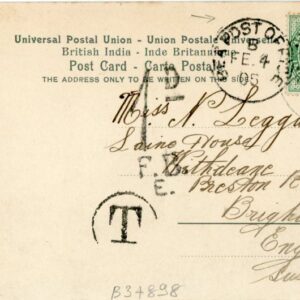 Universal Postal Union - Union Postale Universelle
British India - Inde Britannique
Post Card - Carte Postale
THE ADDRESS ONLY TO BE WRITTEN ON THE SIDE
SEA POST OFFICE
B
FE. 4
05
1D
F.B.
E.
T
Miss N. Legga
House
Preston R
Brigh
Eng
Sus
B34898